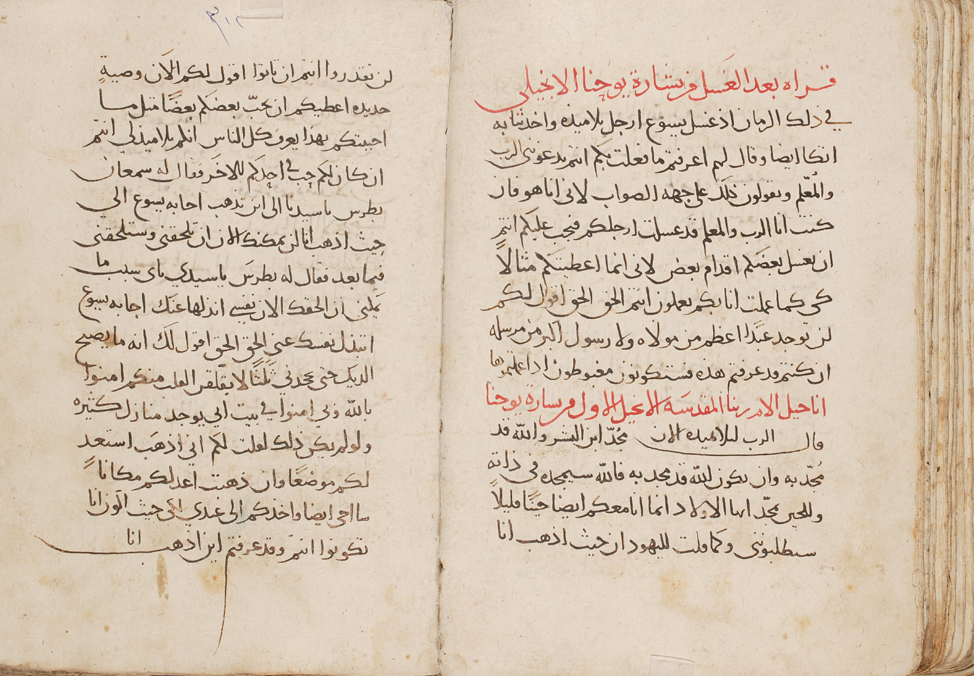 قراه بعد الغسل من بشارة يوحنا الانجيلي
في ذلك الزمان اذ غسل يسوع ارجل تلاميذه واخذ ثيابه
اتكا ايضا وقال لهم اعرفتم ما فعلت بكم انتم تدعونني الرب
والمُعلم وتقولون ذلك على جهه الصواب لاني انا هو فان
كنت انا الرب والمعلم قد غسلت ارجلكم فيجب عليكم انتم
ان يغسل بعضكم اقدام بعض لاني انما اعطيتكم مثالاً
كي كما عملت انا بكم تعملون انتم الحق الحق اقول لكم
لن توجد عبدا اعظم من مولاه ولا رسول اكبر من مرسله
ان كنتم قد عرفتم هذه فستكونون مغبوطون اذا عملتموها
اناجيل الام ربنا المقدسه الانجيل الاول من بشارة يوحنا
قال الرب لتلاميذه الان مُجّد ابن البشر والله قد
مُجّد به وان يكون الله قد مجد به فالله سيمجده في ذاته
وللحين يمجّد ايها الاولاد انما انا معكم ايضا حيناً قليلاً
ستطلبونني وكما قلت لليهود ان حيث اذهب انا
لن تقدروا انتم ان تاتوا اقول لكم الان وصيةٍ
جديده اعطيكم ان يحبّ بعضكم بعضًا مثل ما
احببتكم بهذا يعرف كل الناس انكم تلاميذي انتم
ان كان لكم حب في احدكم للاخر فقال له سمعان
بطرس يا سيد الى اين تذهب اجابه يسوع الى
حيث اذهب انا لن يمكنك الان ان تلحقني وستلحقني
فيما بعد فقال له بطرس يا سيدي باي سبب ما
يمكنني ان الحقك الان نفسي ابذلها عنك اجابه يسوع
اتبذل نفسك عني الحق الحق اقول لك انه ما يصيح
الديك حتى تجحدني ثلثًا لا يقلقن القلب منكم امنوا
بالله وبي امنوا في بيت ابي يوجد منازل كثيره
ولو لم يكن ذلك لقلت لكم اني اذهب استعد
لكم موضعًا وان ذهبت اعد لكم مكانا
سااجي ايضا واخذكم الى عندي لكي حيث اكون انا
تكونوا انتم وقد عرفتم اين اذهب انا